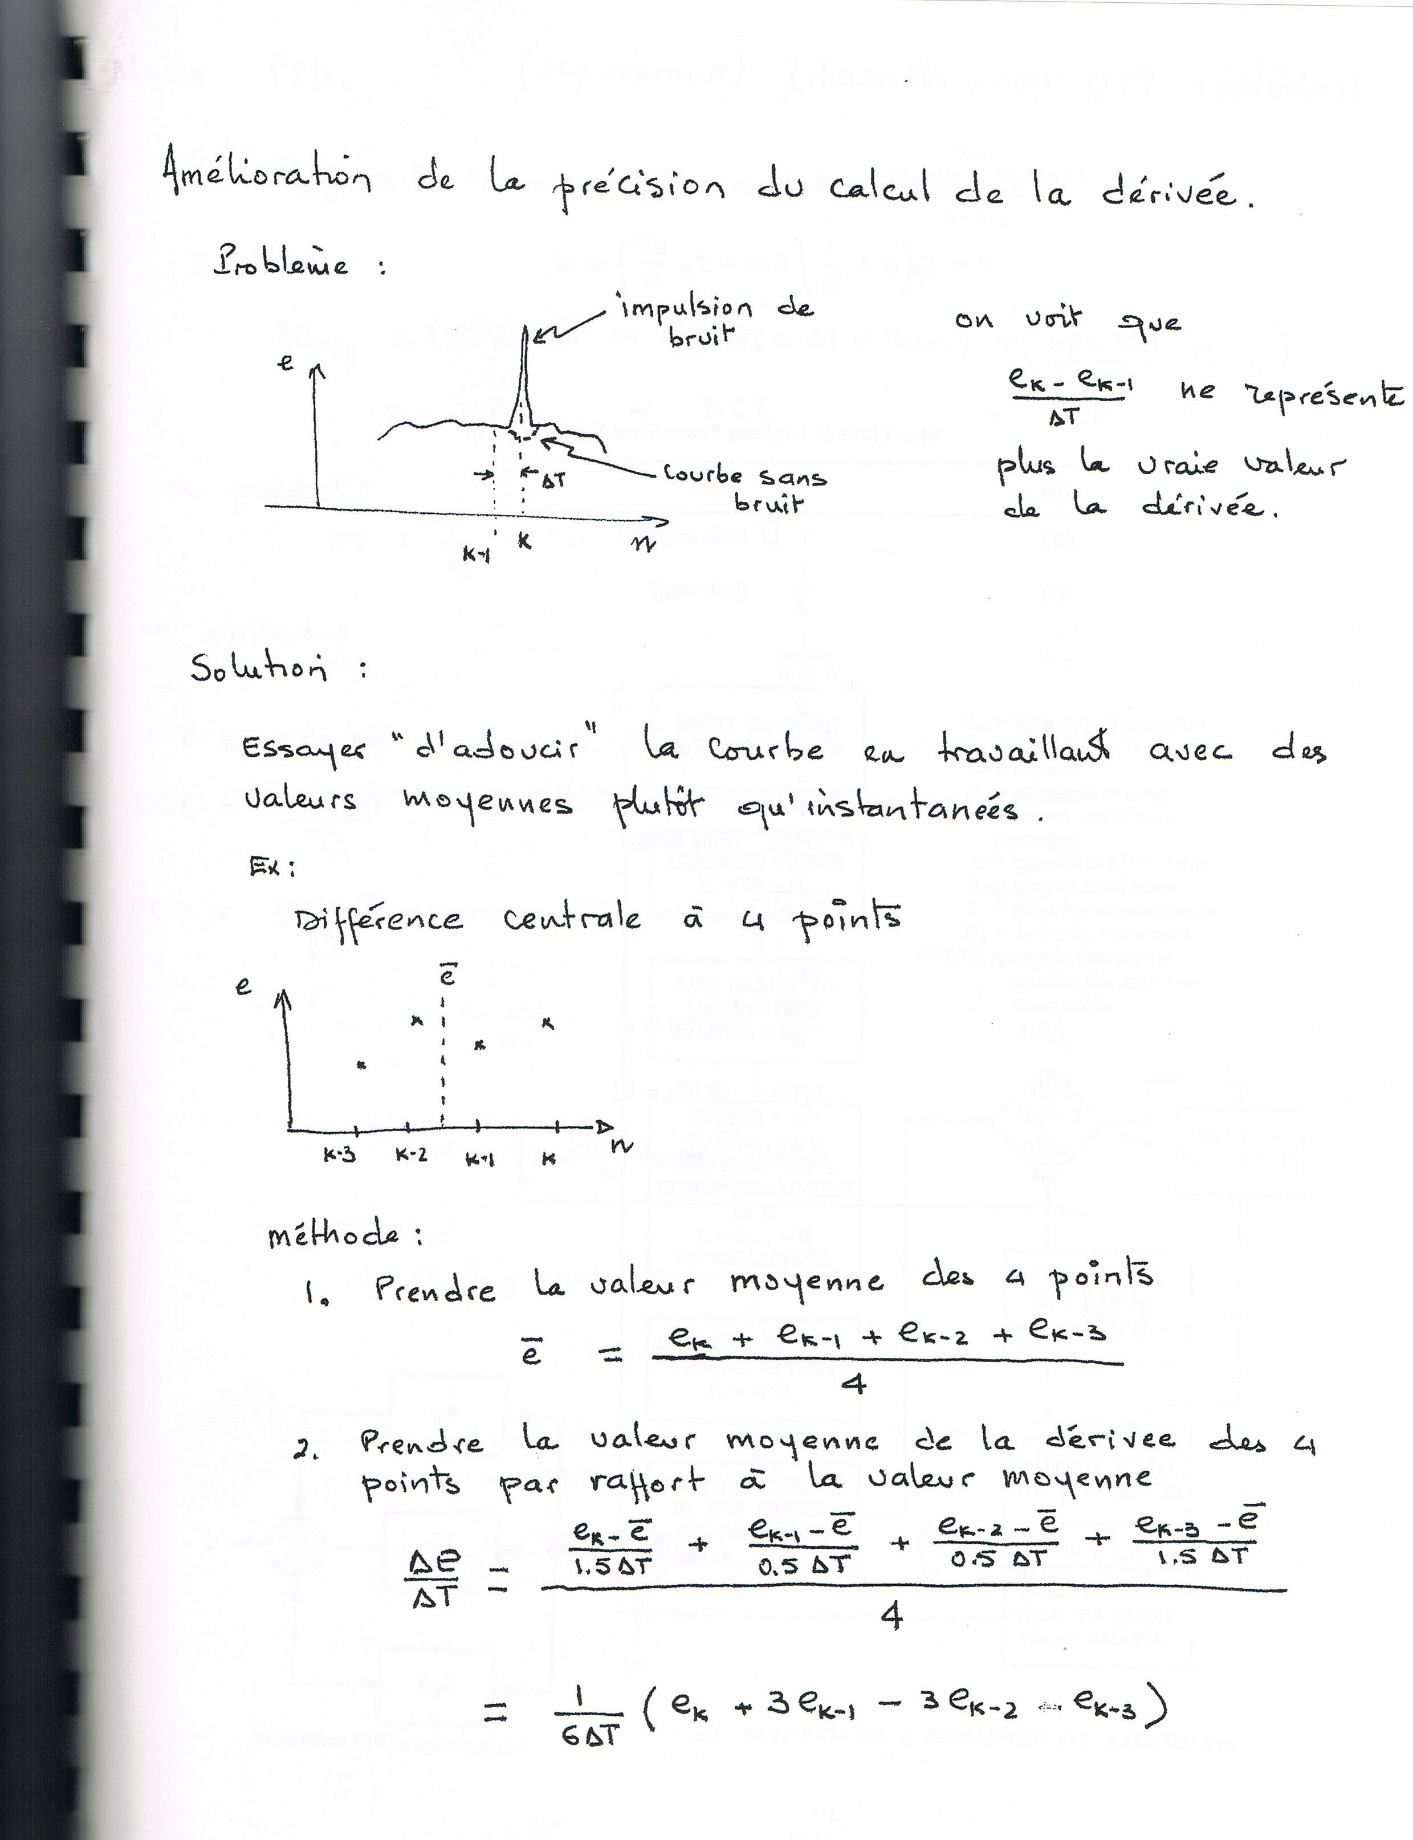 Amélioration de la précision du calcul de la dérivée.
Problème :
impulsion de
bruit
e
courbe sans
bruit
ΔT
K-1 K n
on voit que
(e_K - e_K-1) / ΔT ne représente
plus la vraie valeur
de la dérivée.
Solution :
Essayer "d'adoucir" la courbe en travaillant avec des
valeurs moyennes plutôt qu'instantanées.
Ex :
Différence centrale à 4 points
e ē
K-3 K-2 K-1 K n
méthode :
1. Prendre la valeur moyenne des 4 points
ē = (e_K + e_K-1 + e_K-2 + e_K-3) / 4
2. Prendre la valeur moyenne de la dérivee des 4
points par rapport à la valeur moyenne
Δe/ΔT = ((e_K - ē)/(1.5 ΔT) + (e_K-1 - ē)/(0.5 ΔT) + (e_K-2 - ē)/(0.5 ΔT) + (e_K-3 - ē)/(1.5 ΔT)) / 4
= 1/(6ΔT) (e_K + 3e_K-1 - 3e_K-2 - e_K-3)